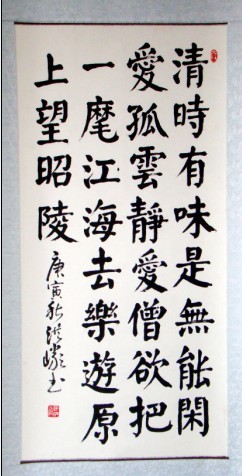 清時有味是無能閑
愛孤雲靜愛僧欲把
一麾江海去樂遊原
上望昭陵
庚寅秋